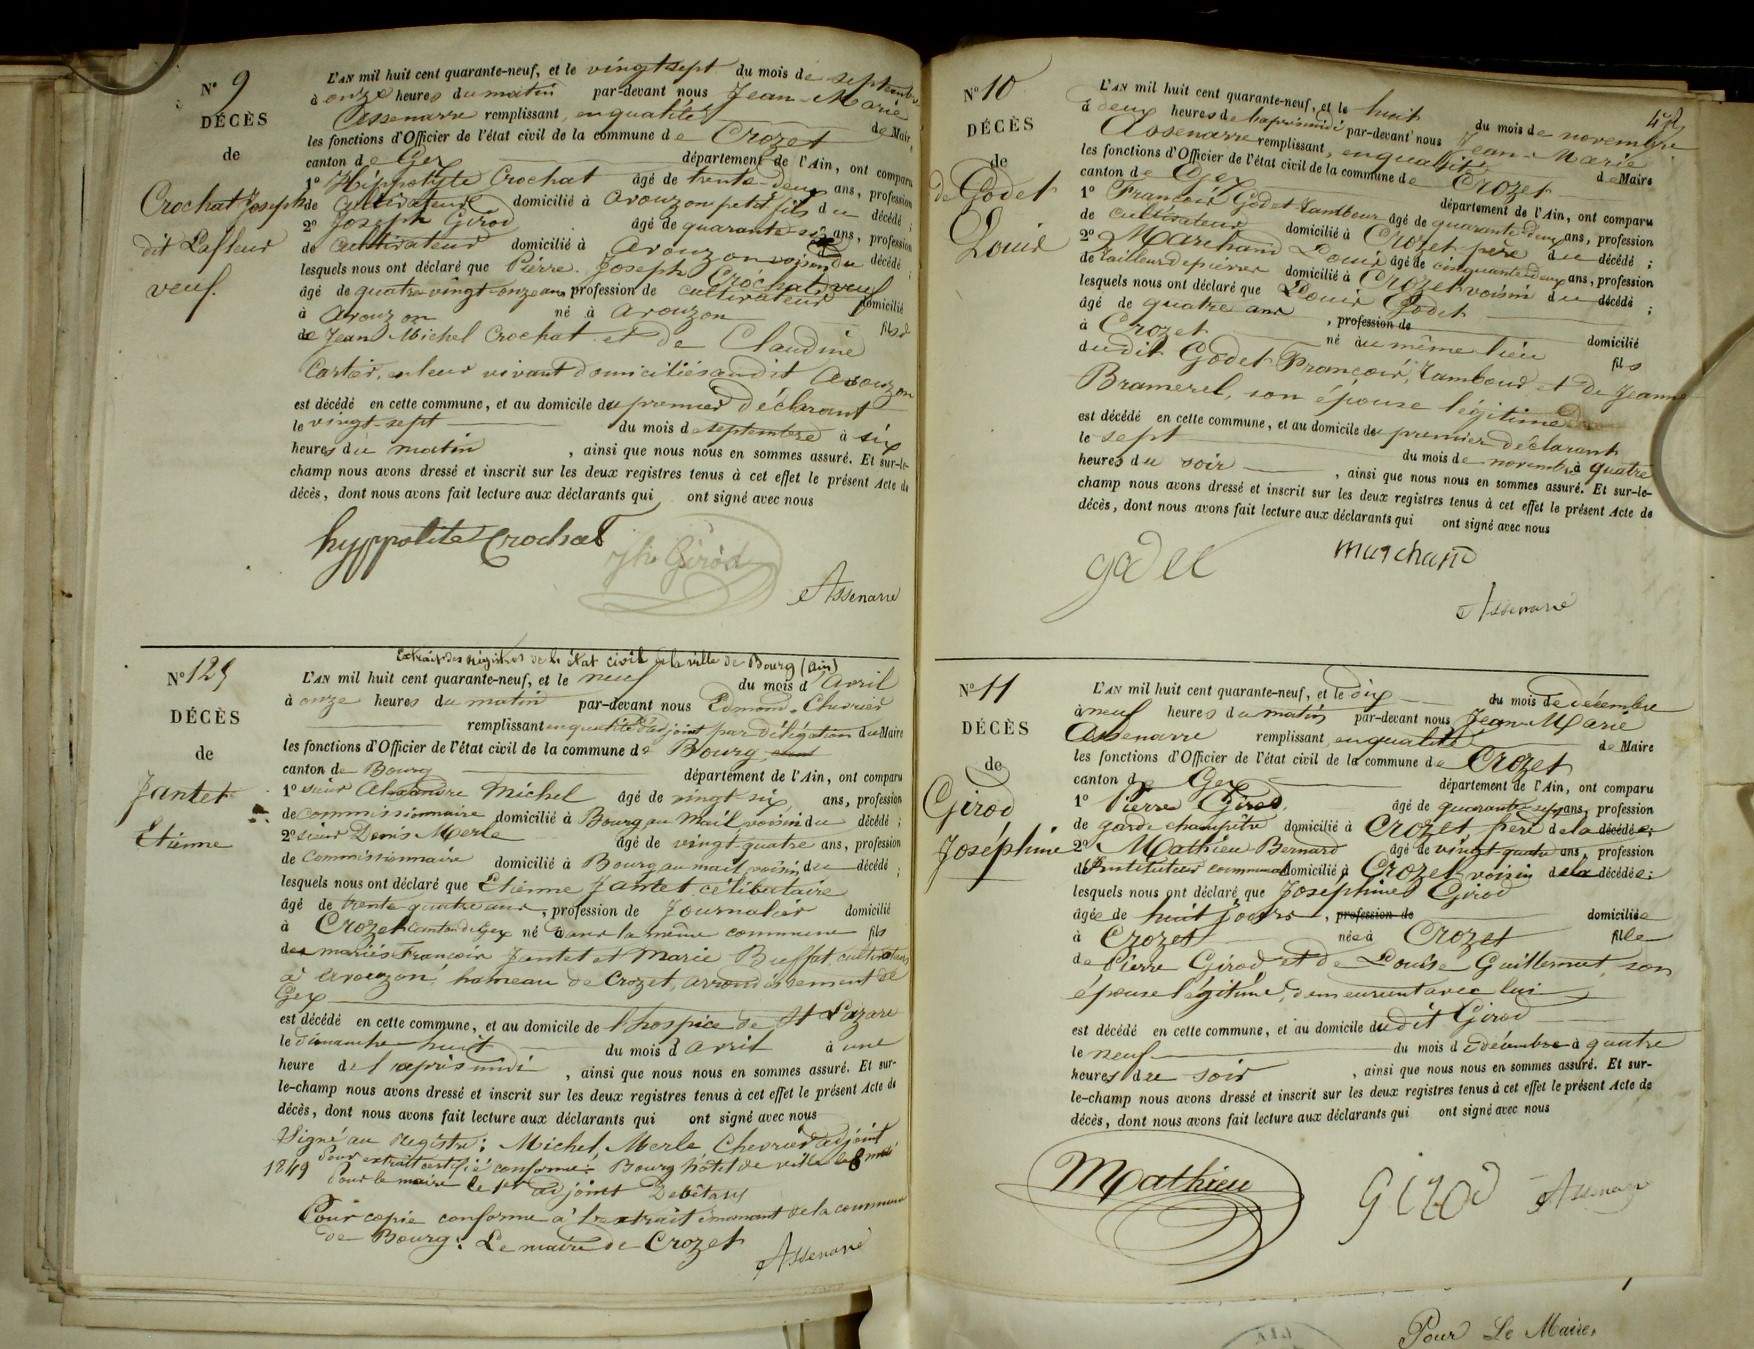 N° 9
DÉCÈS
de
Crochat Joseph
dit Lafleur
veuf.
L'AN mil huit cent quarante-neuf, et le vingt sept du mois de septembre
à onze heures du matin par-devant nous Jean-Marie
Assenarre remplissant, en qualité de Maire,
les fonctions d'Officier de l'état civil de la commune de Crozet
canton de Gex département de l'Ain, ont comparu
1° Hippolyte Crochat âgé de trente-deux ans, profession
de cultivateur domicilié à Avouzon petit fils du décédé ;
2° Joseph Girod âgé de quarante-six ans, profession
de cultivateur domicilié à Avouzon voisin du décédé ;
lesquels nous ont déclaré que Pierre-Joseph Crochat veuf
âgé de quatre vingt-onze ans profession de cultivateur domicilié
à Avouzon né à Avouzon fils d
de Jean Michel Crochat et de Claudine
Cartier, en leur vivant domiciliés audit Avouzon
est décédé en cette commune, et au domicile du premier déclarant
le vingt-sept du mois de septembre à six
heures du matin , ainsi que nous nous en sommes assuré. Et sur-le-
champ nous avons dressé et inscrit sur les deux registres tenus à cet effet le présent Acte de
décès, dont nous avons fait lecture aux déclarants qui ont signé avec nous
hyppolite Crochat
Jh Girod
Assenarre
N° 129
DÉCÈS
de
Jantet
Etienne
Extrait des registres de l'état civil de la ville de Bourg (Ain)
L'AN mil huit cent quarante-neuf, et le neuf du mois d'avril
à onze heures du matin par-devant nous Edmond Chevrier
remplissant en qualité d'adjoint par délégation du Maire
les fonctions d'Officier de l'état civil de la commune de Bourg,
canton de Bourg département de l'Ain, ont comparu
1° sieur Alexandre Michel âgé de vingt-six, ans, profession
de commissionnaire domicilié à Bourg au Mail, voisin du décédé ;
2° sieur Denis Merle âgé de vingt-quatre ans, profession
de commissionnaire domicilié à Bourg au mail, voisin du décédé ;
lesquels nous ont déclaré que Etienne Jantet célibataire
âgé de trente quatre ans, profession de Journalier domicilié
à Crozet canton de Gex né dans la même commune fils
des mariés François Jantet et Marie Buffat, cultivateurs
à Avouzon, hameau de Crozet, arrondissement de
Gex
est décédé en cette commune, et au domicile de l'hospice de St Lazare
le dimanche huit du mois d'avril à une
heure de l'après midi , ainsi que nous nous en sommes assuré. Et sur-
le-champ nous avons dressé et inscrit sur les deux registres tenus à cet effet le présent Acte de
décès, dont nous avons fait lecture aux déclarants qui ont signé avec nous
Signé au registre : Michel, Merle, Chevrier adjoint
Pour extrait certifié conforme : Bourg hôtel de ville le 8 mai
1849 Pour le maire le 1er adjoint
Pour copie conforme à l'extrait émanant de la commune
de Bourg : Le maire de Crozet
Assenarre
48
N° 10
DÉCÈS
de
de Godet
Louis
L'AN mil huit cent quarante-neuf, et le huit du mois de novembre
à deux heures de l'après midi par-devant nous Jean-Marie
Assenarre remplissant, en qualité de Maire
les fonctions d'Officier de l'état civil de la commune de Crozet
canton de Gex département de l'Ain, ont comparu
1° François Godet tambour âgé de quarante deux ans, profession
de cultivateur domicilié à Crozet père du décédé ;
2° Marchand Louis âgé de cinquante deux ans, profession
de tailleur de pierres domicilié à Crozet voisin du décédé ;
lesquels nous ont déclaré que Louis Godet
âgé de quatre ans , profession de domicilié
à Crozet né au même lieu fils
dudit Godet François, tambour et de Jeanne
Bramerel, son épouse légitime
est décédé en cette commune, et au domicile du premier déclarant
le sept du mois de novembre à quatre
heures du soir , ainsi que nous nous en sommes assuré. Et sur-le-
champ nous avons dressé et inscrit sur les deux registres tenus à cet effet le présent Acte de
décès, dont nous avons fait lecture aux déclarants qui ont signé avec nous
godet
marchand
Assenarre
N° 11
DÉCÈS
de
Girod
Joséphine
L'AN mil huit cent quarante-neuf, et le dix du mois de décembre
à neuf heures du matin par-devant nous Jean-Marie
Assenarre remplissant, en qualité de Maire
les fonctions d'Officier de l'état civil de la commune de Crozet
canton de Gex département de l'Ain, ont comparu
1° Pierre Girod âgé de quarante six ans, profession
de garde champêtre domicilié à Crozet, père de la décédée ;
2° Mathieu Bernard âgé de vingt quatre ans, profession
d'Instituteur communal domicilié à Crozet, voisin de la décédée ;
lesquels nous ont déclaré que Joséphine Girod
âgée de huit jours , profession de domiciliée
à Crozet née à Crozet fille
de Pierre Girod et de Louise Guillermet, son
épouse légitime, demeurant avec lui
est décédé en cette commune, et au domicile dudit Girod
le neuf du mois de décembre à quatre
heures du soir , ainsi que nous nous en sommes assuré. Et sur-
le-champ nous avons dressé et inscrit sur les deux registres tenus à cet effet le présent Acte de
décès, dont nous avons fait lecture aux déclarants qui ont signé avec nous
Mathieu
girod
Assenarre
AIN
Pour Le Maire,